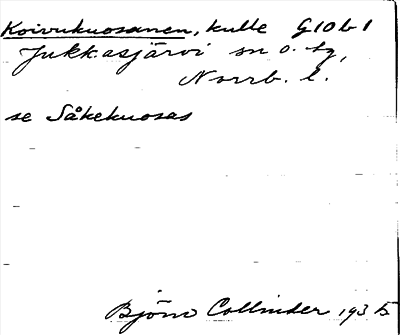 Koivukuosanen, kulle G10b1
Jukkasjärvi sn o. tg,
Norrb. l.
se Såkekuosas
Björn Collinder 1935